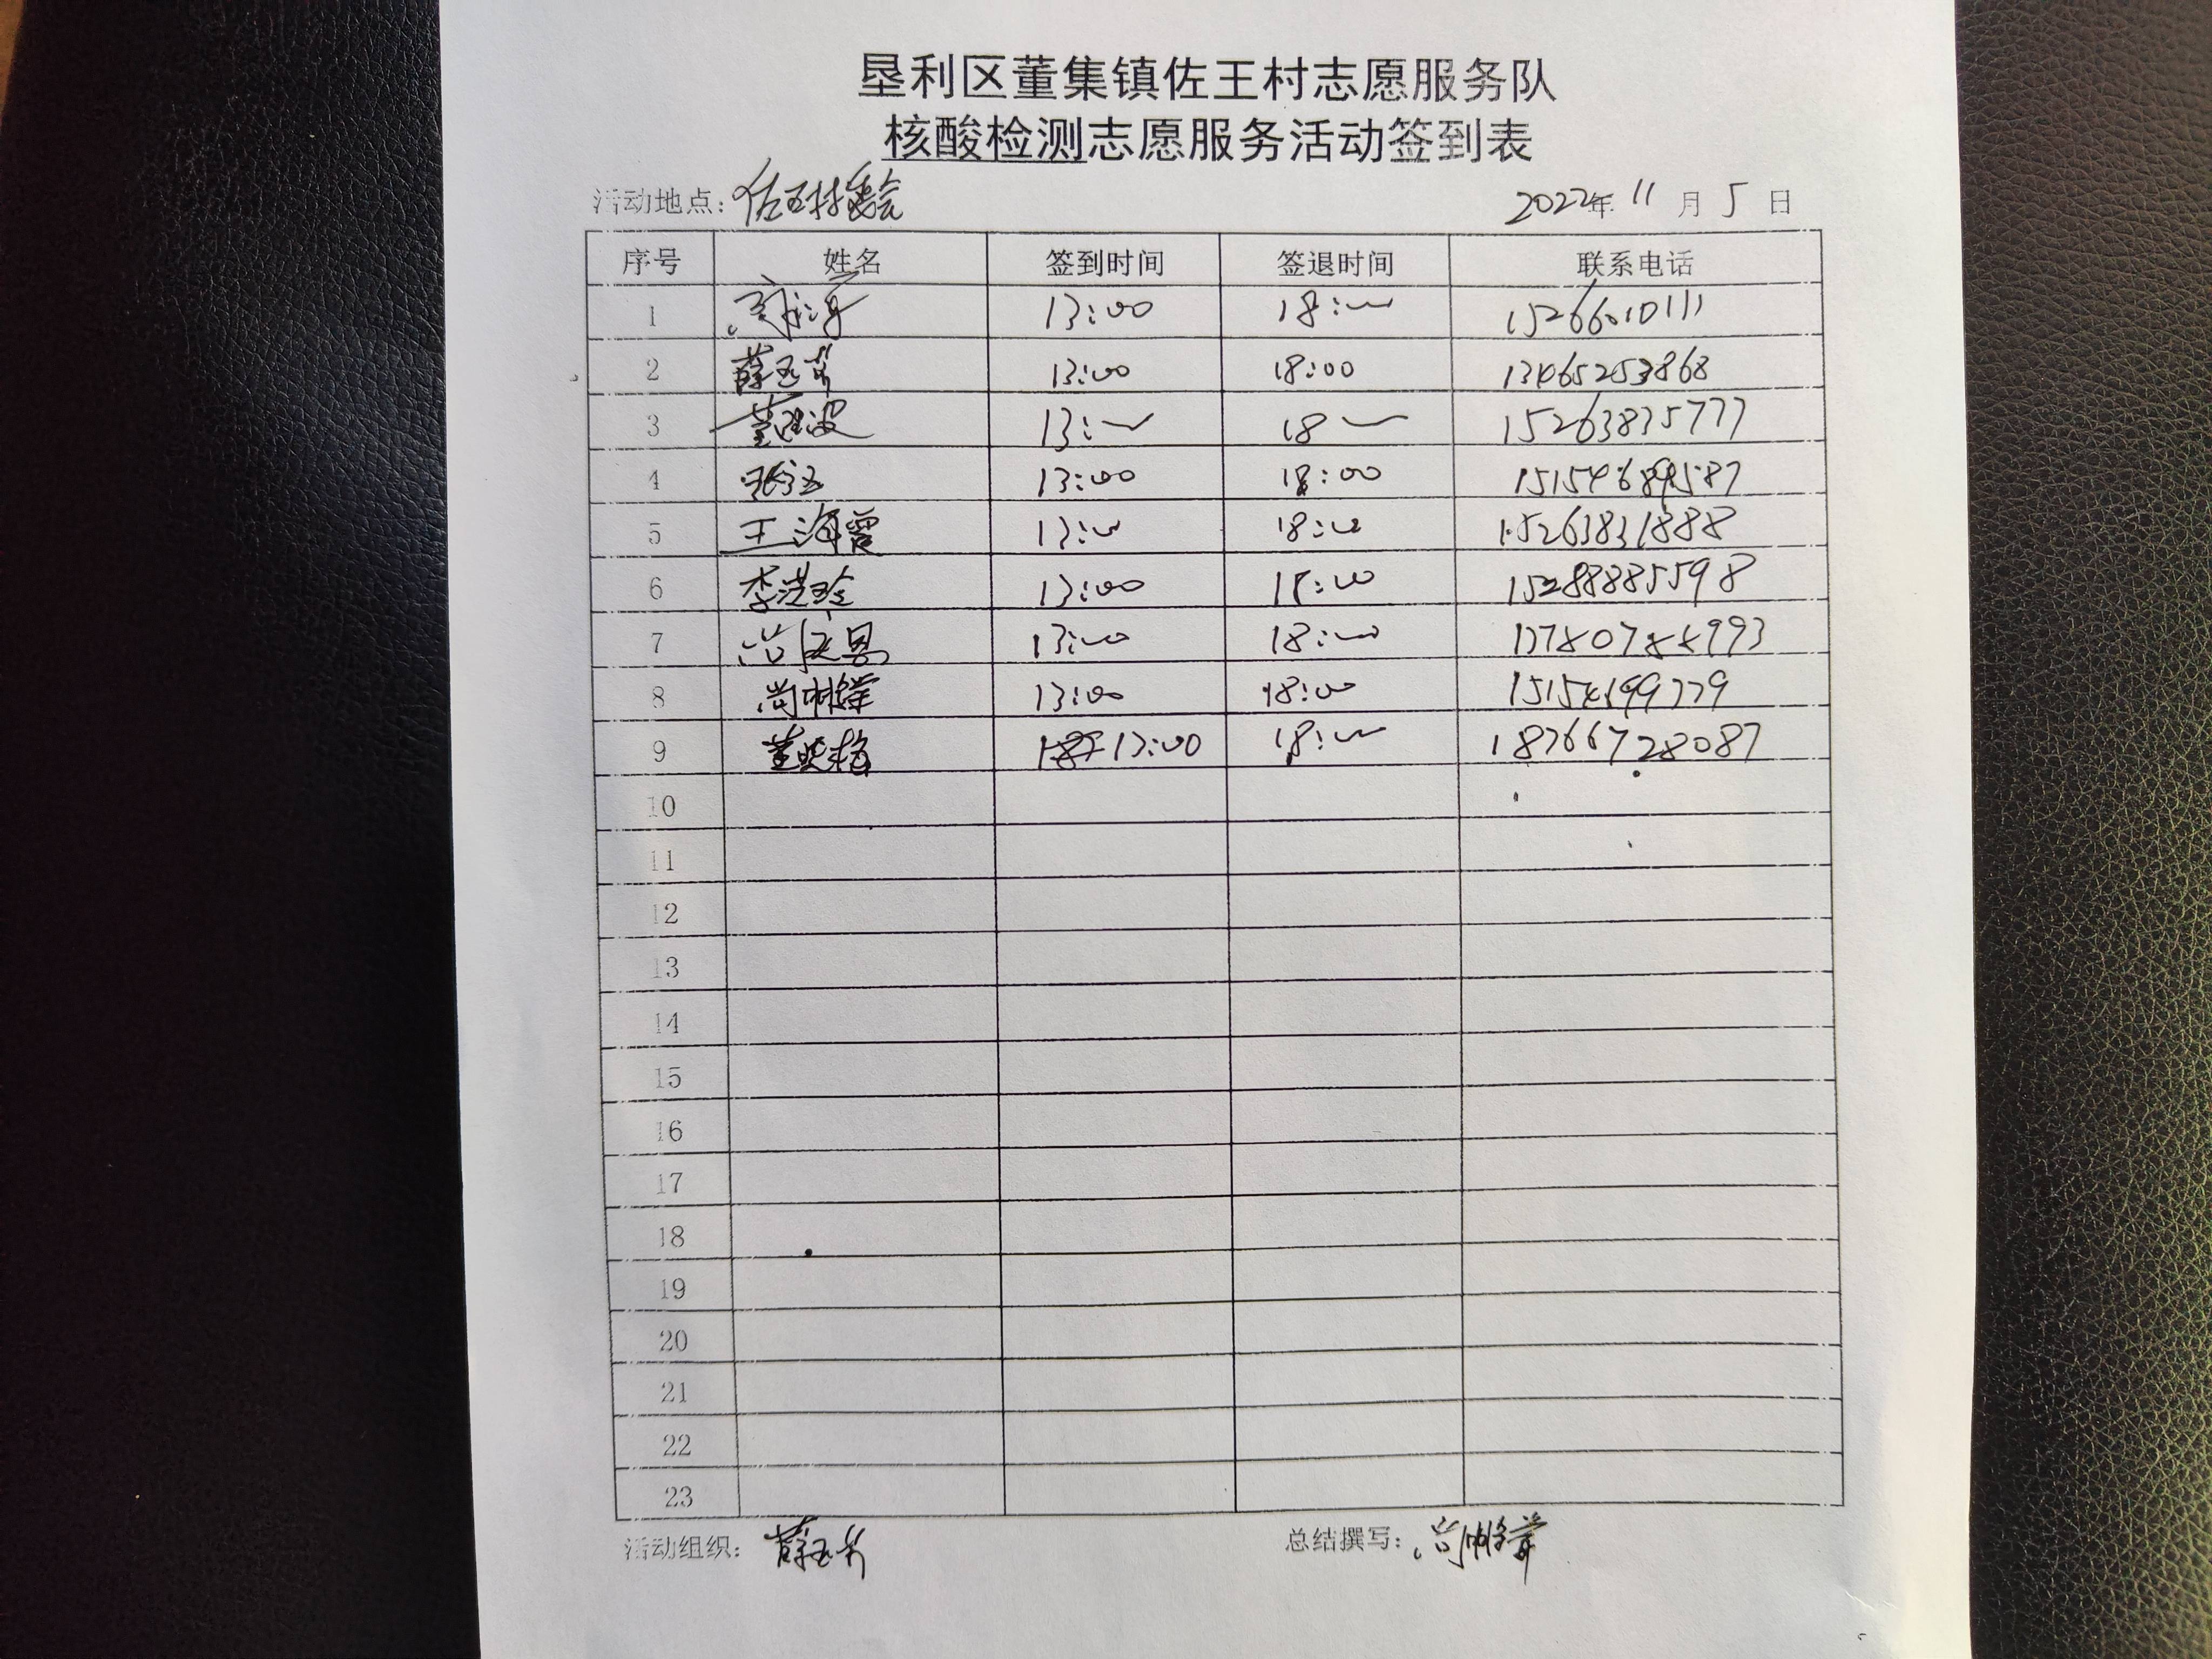 垦利区董集镇佐王村志愿服务队
核酸检测志愿服务活动签到表
活动地点：佐王村委会 2022年 11 月 5 日
序号 姓名 签到时间 签退时间 联系电话
1 13:00 18:00 15266010111
2 薛玉芳 13:00 18:00 13465253868
3 13:00 18 15263835777
4 13:00 18:00
5 王海霞 13:00 18:00 15263831888
6 李洪玲 13:00 18:00 15288885598
7 13:00 18:00
8 尚帅锋 13:00 18:00 15154199779
9 董晓梅 13:00 18:00 18766728087
10
11
12
13
14
15
16
17
18
19
20
21
22
23
活动组织：薛玉芳 总结撰写：尚帅锋